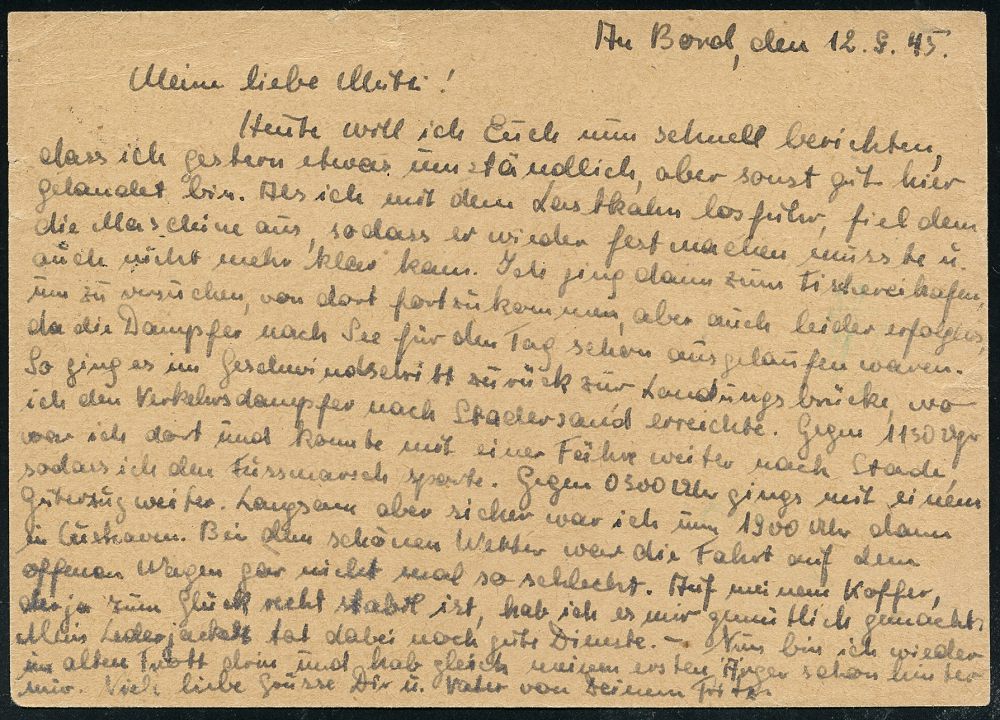 An Bord, den 12. 9. 45.
Meine liebe Mutti!
Heute will ich Euch nun schnell berichten,
dass ich gestern etwas umständlich, aber sonst gut hier
gelandet bin. Als ich mit dem Lastkahn losfuhr, fiel dem
die Maschine aus, sodass er wieder festmachen musste u.
auch nicht mehr klar kam. Ich ging dann zum Fischereihafen,
um zu versuchen, von dort fortzukommen, aber auch leider erfolglos,
da die Dampfer nach See für den Tag schon ausgelaufen waren.
So ging es im Geschwindschritt zurück zur Landungsbrücke, wo
ich den Verkehrsdampfer nach Stadersand erreichte. Gegen 1130 Uhr
war ich dort und konnte mit einer Fähre weiter nach Stade,
sodass ich den Fussmarsch sparte. Gegen 0300 Uhr gings mit einem
Güterzug weiter. Langsam aber sicher war ich um 1900 Uhr dann
in Cuxhaven. Bei dem schönen Wetter war die Fahrt auf dem
offenen Wagen gar nicht mal so schlecht. Auf meinem Koffer,
der ja zum Glück recht stabil ist, hab ich es mir gemütlich gemacht.
Mein Lederjackett tat dabei noch gute Dienste. – Nun bin ich wieder
im alten Trott drin und hab gleich meinen ersten Ärger schon hinter
mir. Viele liebe Grüsse Dir u. Vater von Deinem Fritz.